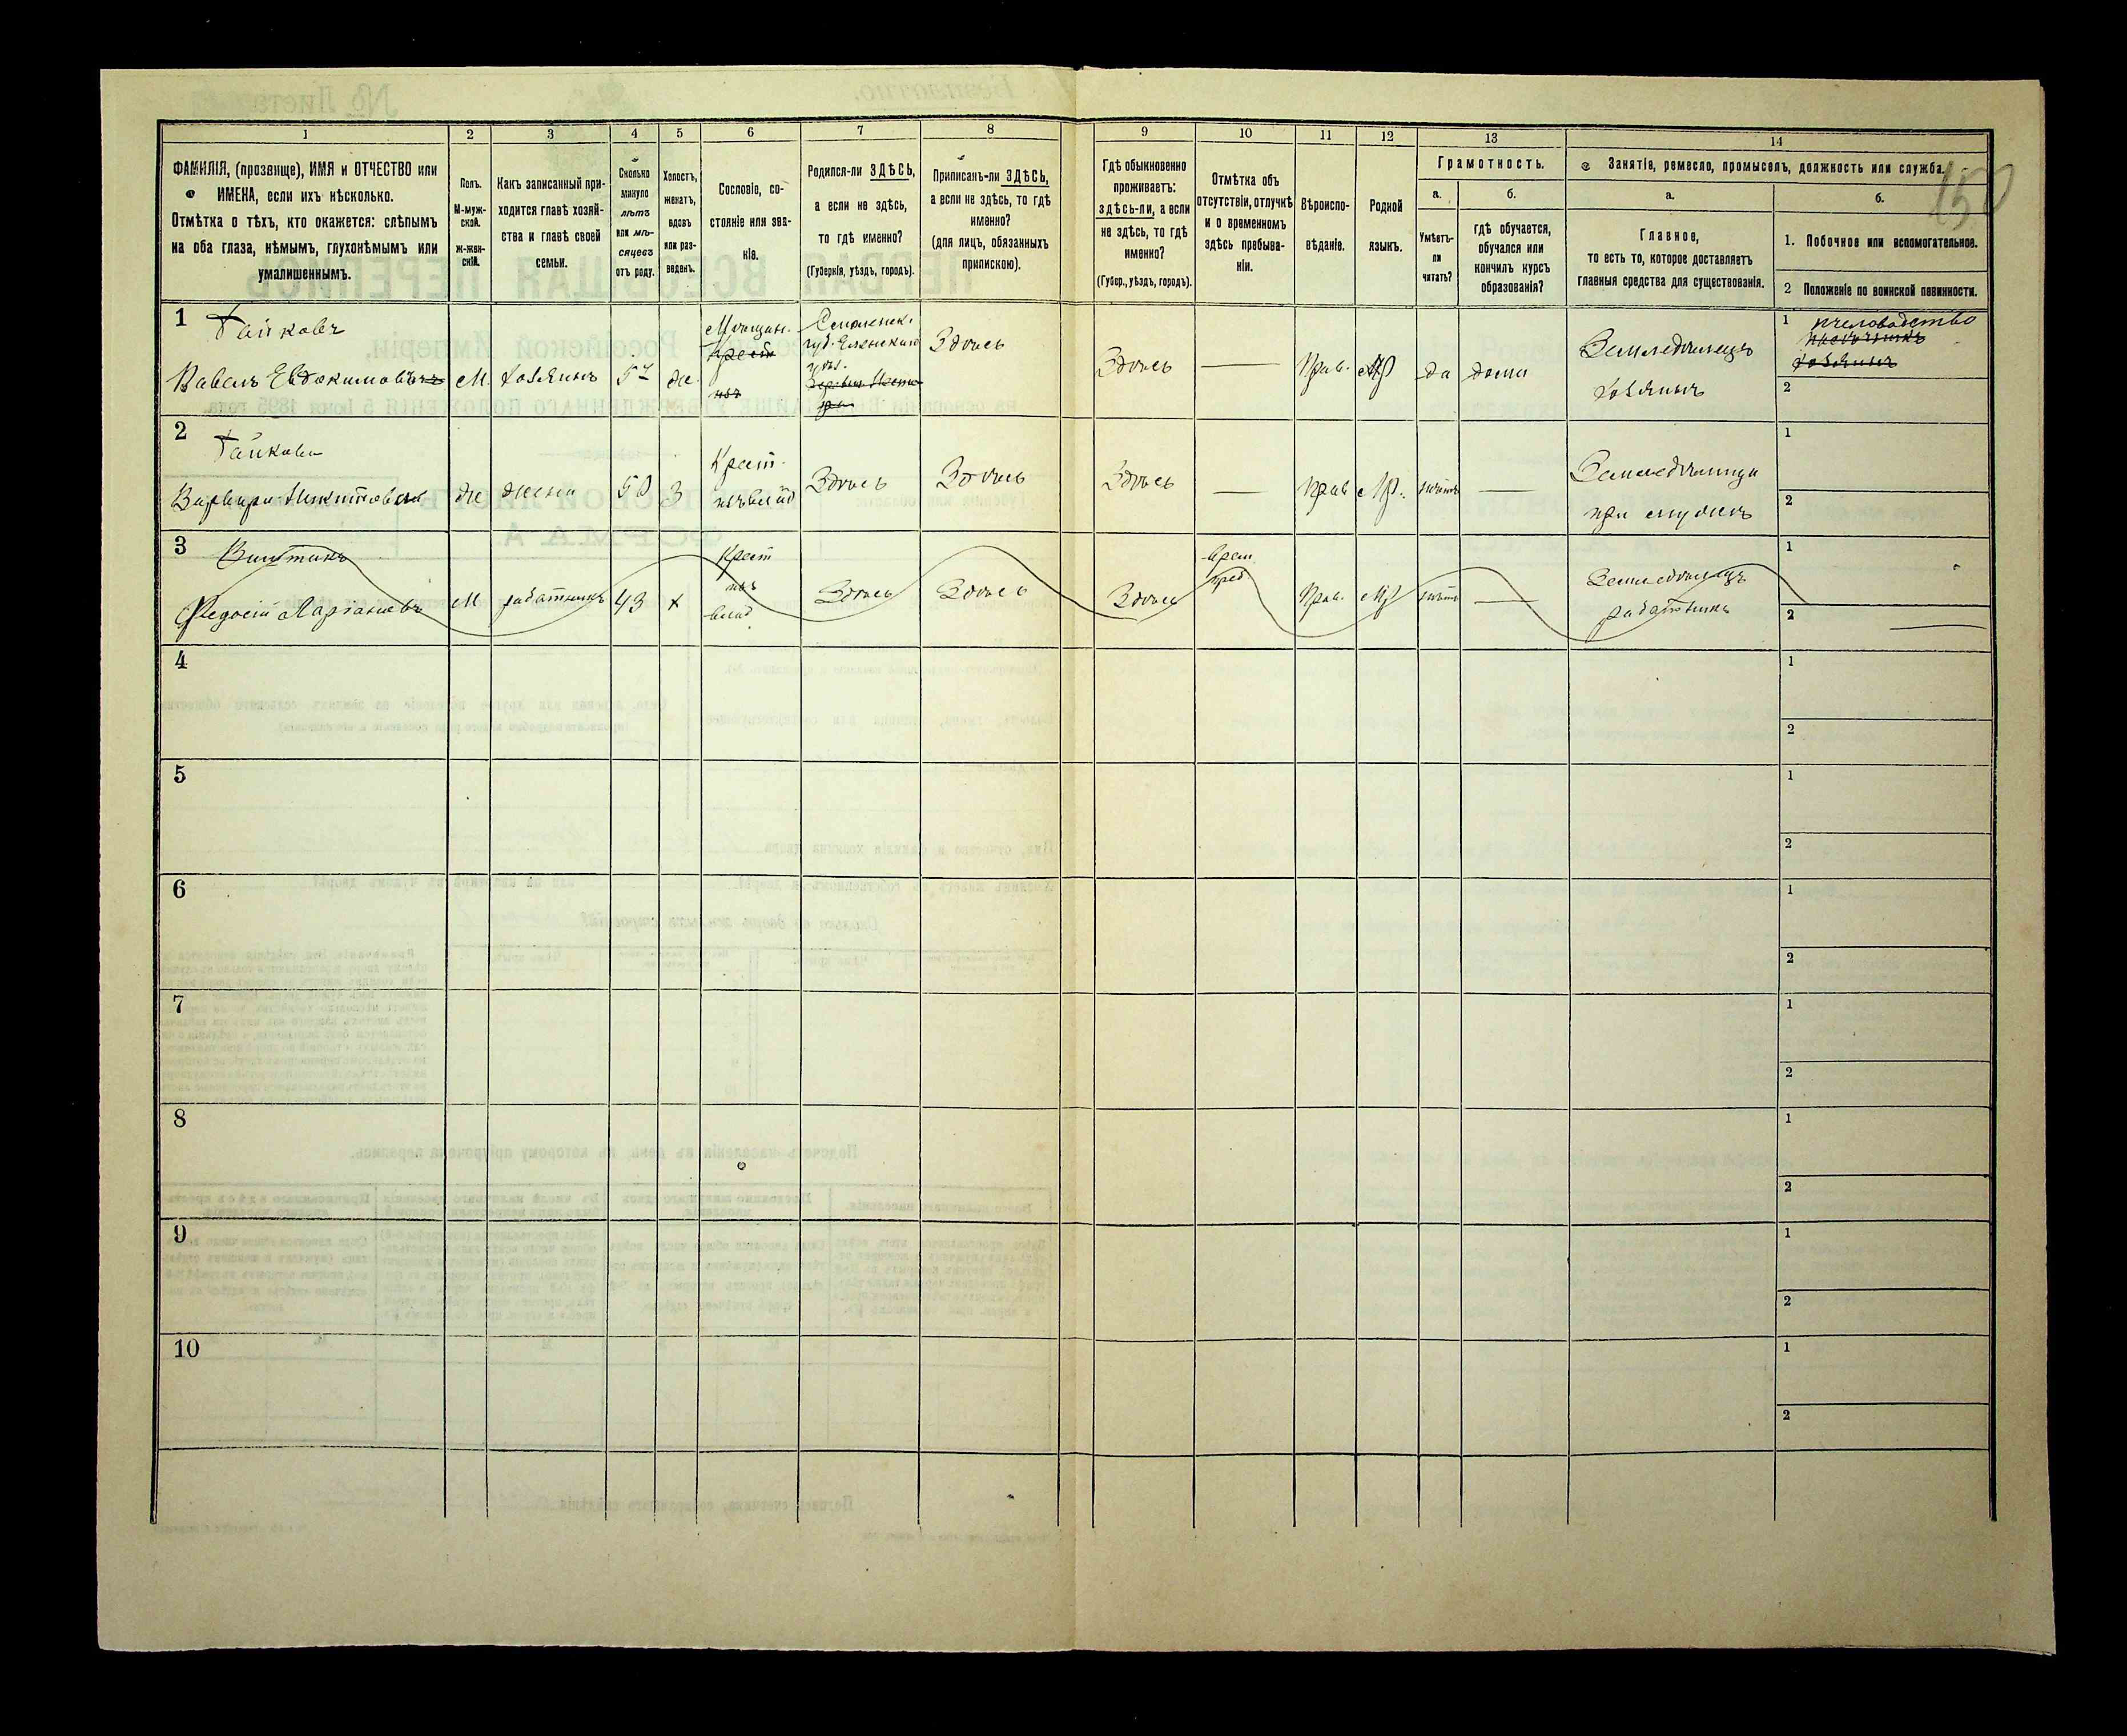 1 2 3 4 5 6 7 8 9 10 11 12 13 14
ФАМИЛІЯ, (прозвище), ИМЯ и ОТЧЕСТВО или
ИМЕНА, если ихъ нѣсколько.
Отмѣтка о тѣхъ, кто окажется: слѣпымъ
на оба глаза, нѣмымъ, глухонѣмымъ или
умалишеннымъ.
Полъ.
М-муж-
ской.
ж-жен-
скій.
Какъ записанный при-
ходится главѣ хозяй-
ства и главѣ своей
семьи.
Сколько
минуло
лѣтъ
или мѣ-
сяцевъ
отъ роду.
Холостъ,
женатъ,
вдовъ
или раз-
веденъ.
Сословіе, со-
стояніе или зва-
ніе.
Родился-ли ЗДѢСЬ,
а если не здѣсь,
то гдѣ именно?
(Губернія, уѣздъ, городъ).
Приписанъ-ли ЗДѢСЬ,
а если не здѣсь, то гдѣ
именно?
(для лицъ, обязанныхъ
припискою).
Гдѣ обыкновенно
проживаетъ:
здѣсь-ли, а если
не здѣсь, то гдѣ
именно?
(Губер., уѣздъ, городъ).
Отмѣтка объ
отсутствіи, отлучкѣ
и о временномъ
здѣсь пребыва-
ніи.
Вѣроиспо-
вѣданіе.
Родной
языкъ.
Грамотность.
а.
Умѣетъ-
ли
читать?
б.
гдѣ обучается,
обучался или
кончилъ курсъ
образованія?
Занятіе, ремесло, промыселъ, должность или служба.
150
а.
Главное,
то есть то, которое доставляетъ
главныя средства для существованія.
б.
1. Побочное или вспомогательное.
2 Положеніе по воинской повинности.
1
Гайковъ
Павелъ Евдокимовъ
М.
хозяинъ
57
же.
Мѣщан.
Крест
изъ
Смоленск.
губ. Ельнинскаго
уѣз.
Здѣсь
Здѣсь
Прав.
Мр
да
дома
Земледѣлецъ
хозяинъ
1 пчеловодство
хозяинъ
2
2
Гайкова
Варвара Никитовна
Же
жена
50
З
Крест.
изъ влад
Здѣсь
Здѣсь
Здѣсь
Прав
Мр.
нѣтъ
Земледѣлица
при мужѣ
1
2
3
Федосій Ларіоновъ
М
работникъ
43
х
Крест
изъ
влад
Здѣсь
Здѣсь
Здѣсь
врем.
преб.
Прав.
Мр
нѣтъ
Земледѣлецъ
работникъ
1
2
4
1
2
5
1
2
6
1
2
7
1
2
8
1
2
9
1
2
10
1
2